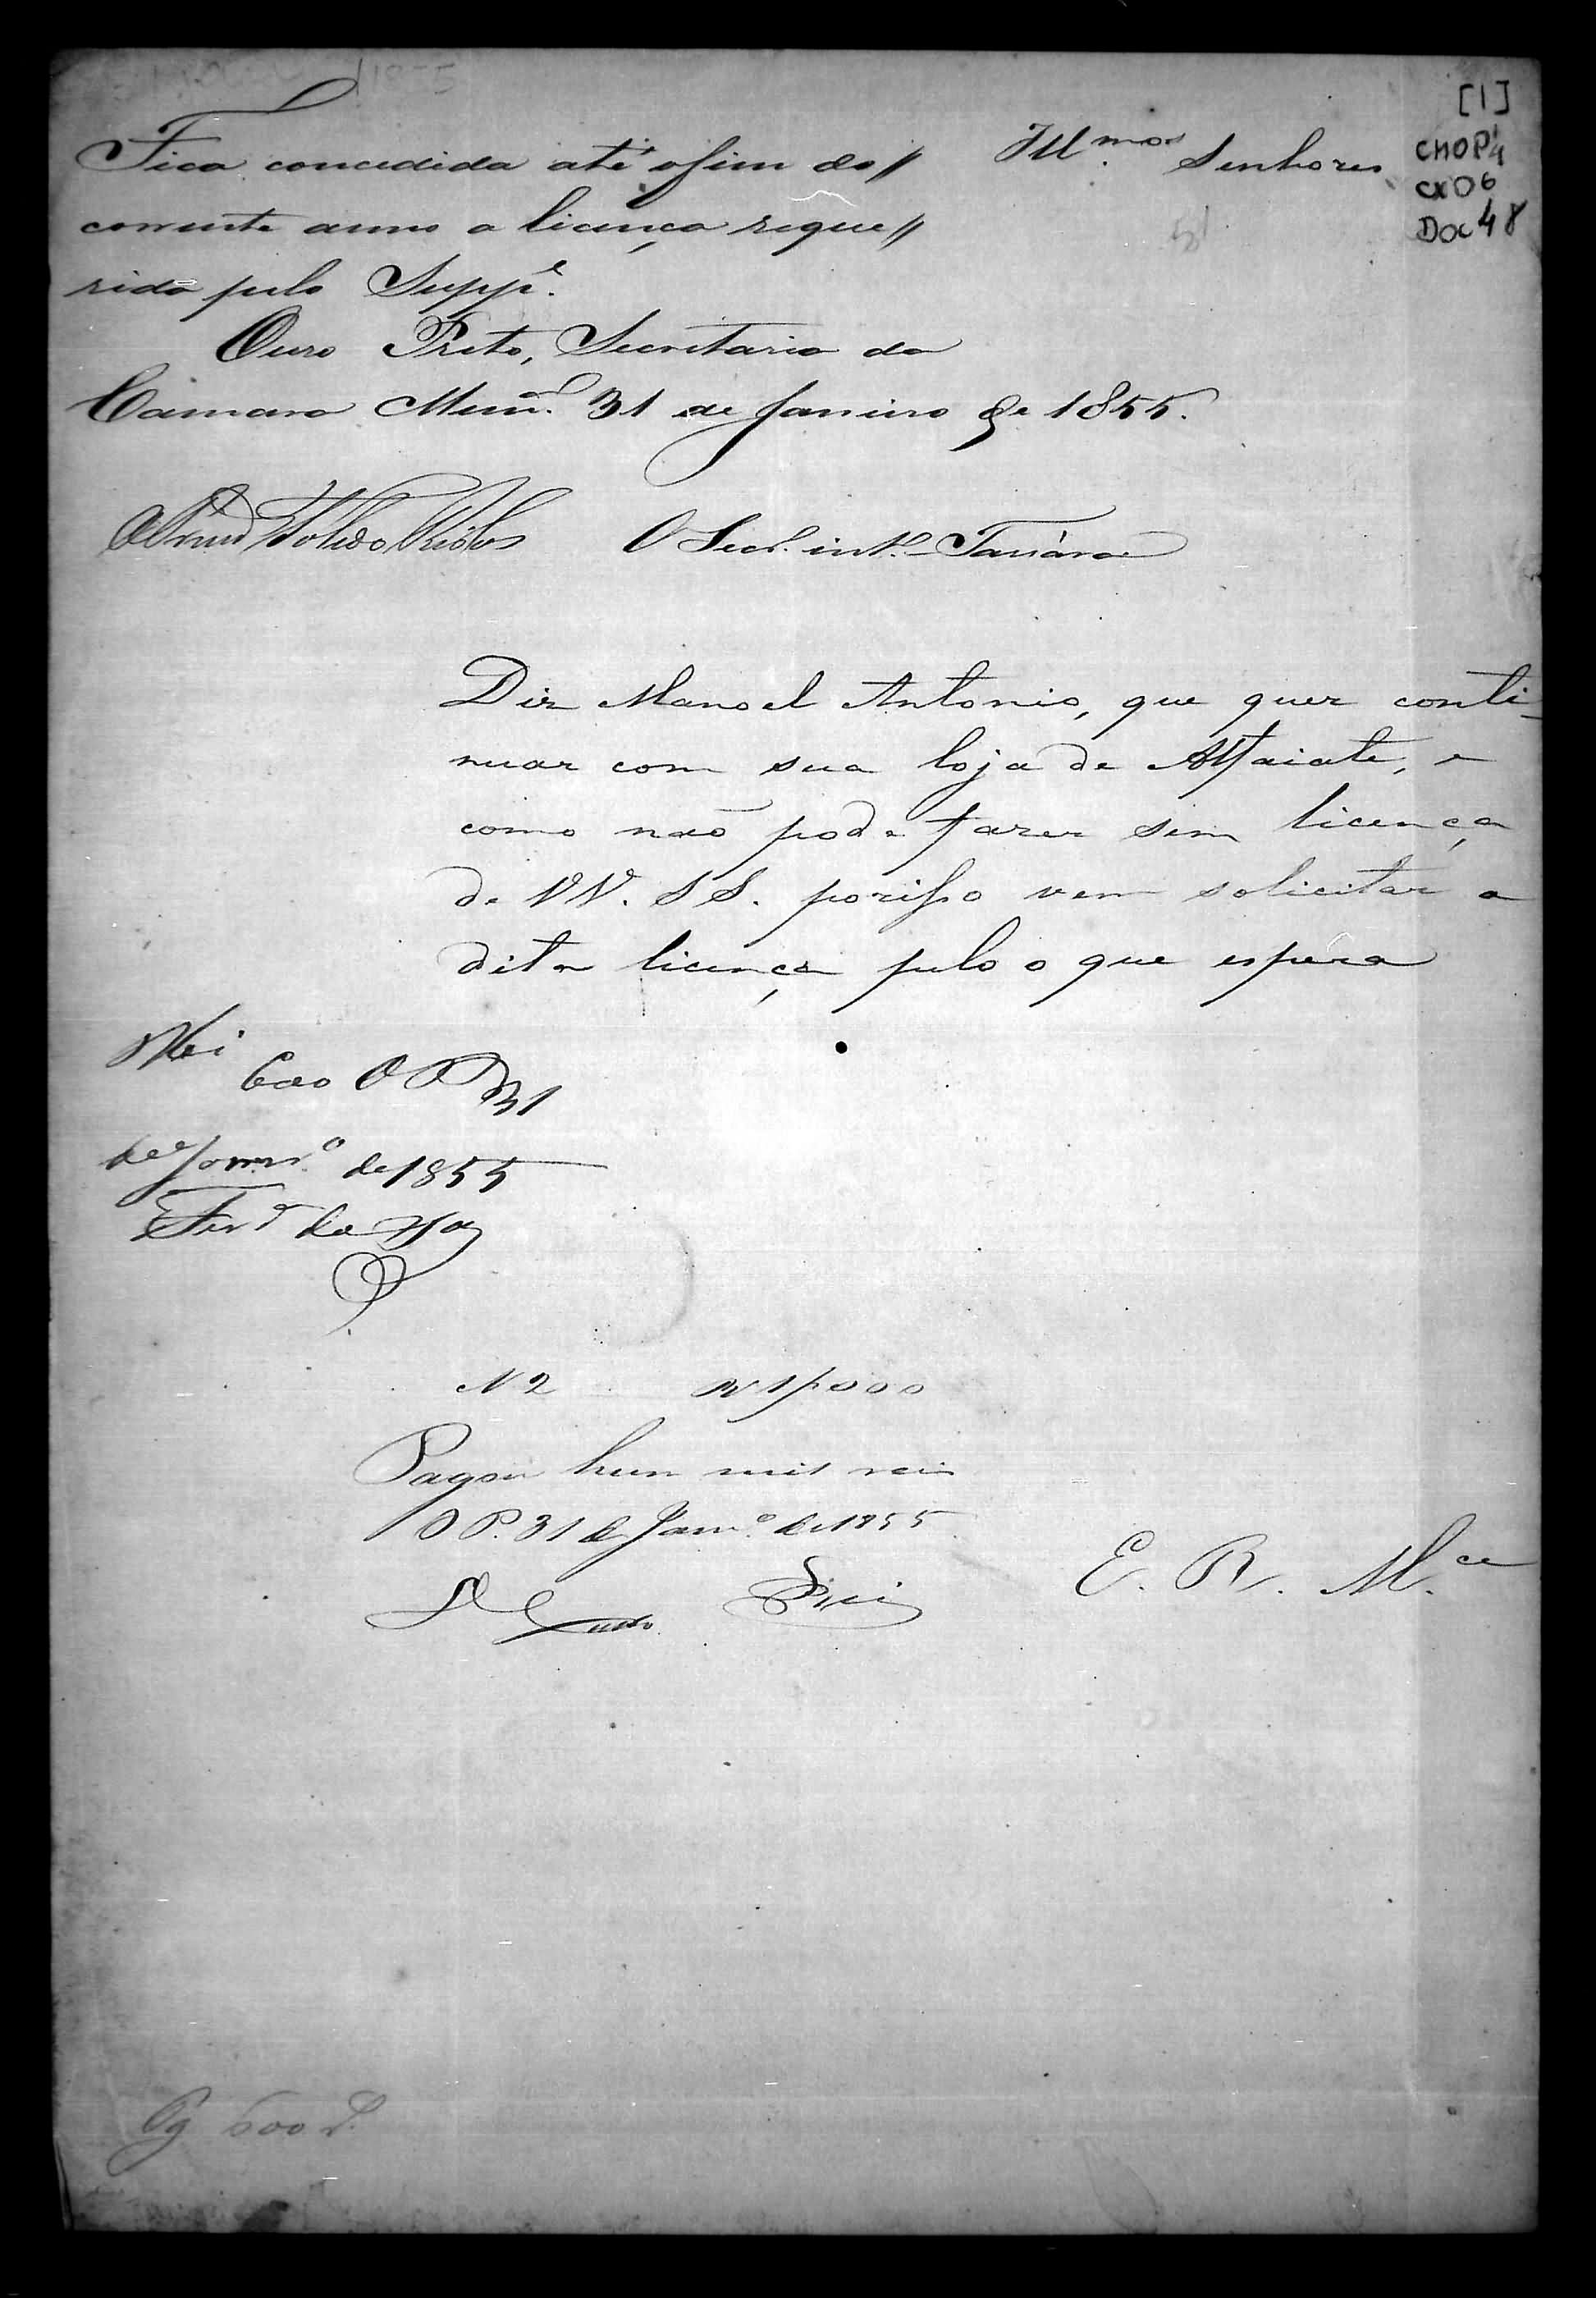 [1]
CMOP
CX 06
Doc 48
Fica concedida até o fim do //
corrente anno a licença reque //
rida pelo Supp.e
Ouro Preto, Secretaria da
Camara Mun.al 31 de Janeiro de 1855.
Toledo Ribas
O Secr. int.o Tavares
Ill.mos Senhores
Diz Manoel Antonio, que quer conti-
nuar com sua loja de Alfaiate, e
como não pode fazer sem licença
de VV. SS. porisso vem solicitar a
dita licença pelo o que espera
O P 31
de Janr.o de 1855
N 2 R 1$000
Pagou hum mil reis
O P. 31 de Janr.o de 1855
E. R. M.ce
Pg 500